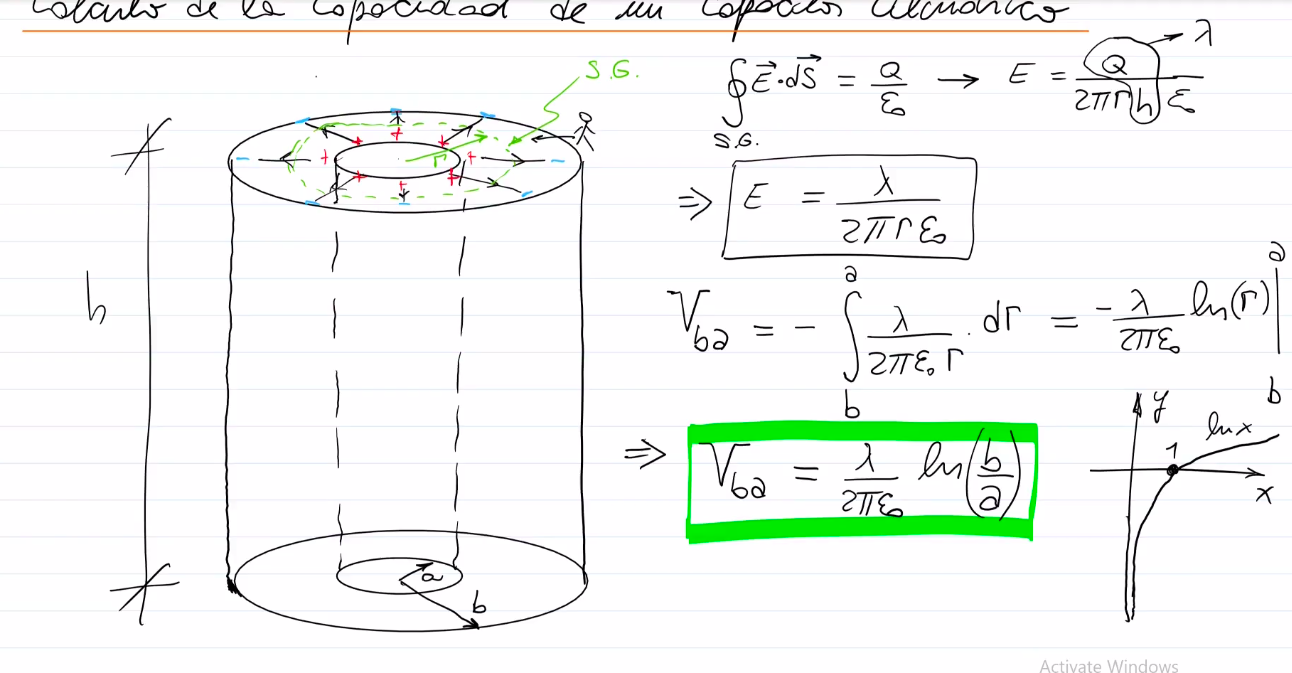 Cálculo de la capacidad de un capacitor cilíndrico
S.G.
∮ E⃗·dS⃗ = Q/ε₀ → E = Q/(2πrhε₀) → λ
S.G.
r
⇒ E = λ/(2πrε₀)
h
V_ba = - ∫_b^a λ/(2πε₀r) · dr = -λ/(2πε₀) ln(r) |_b^a
⇒ V_ba = λ/(2πε₀) ln(b/a)
y
ln x
1
x
a
b
Activate Windows